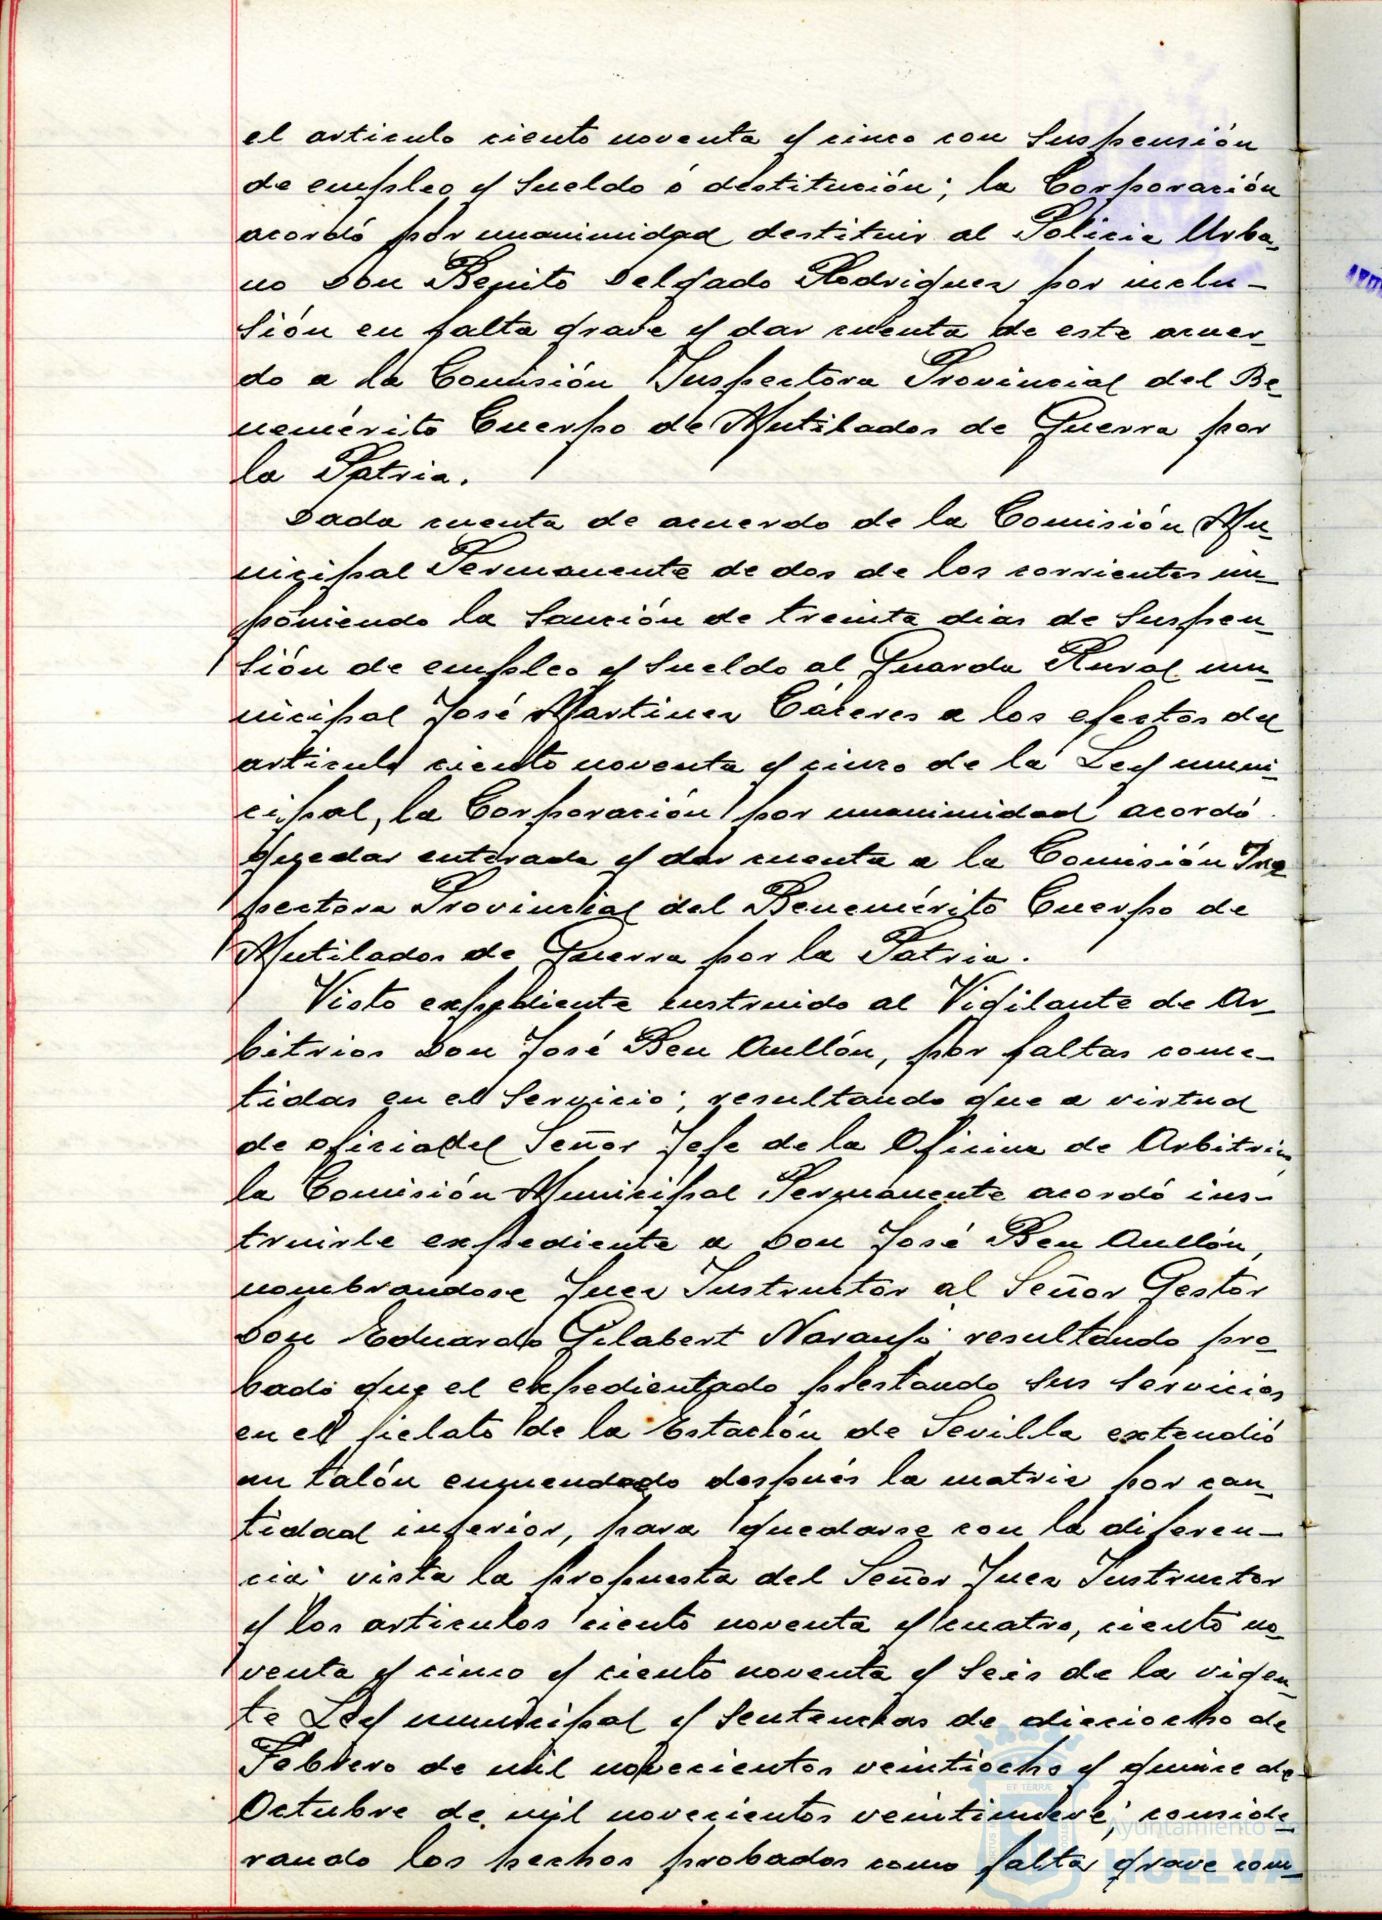 el articulo ciento noventa y cinco con suspensión
de empleo y sueldo ó destitución; la Corporación
acordó por unanimidad destituir al Policia Urba-
no Don Benito Delgado Rodriguez por inclu-
sión en falta grave y dar cuenta de este acuer-
do a la Comisión Inspectora Provincial del Be-
nemérito Cuerpo de Mutilados de Guerra por
la Patria.
Dada cuenta de acuerdo de la Comisión Mu-
nicipal Permanente de dos de los corrientes im-
poniendo la sanción de treinta dias de suspen-
sión de empleo y sueldo al Guarda Rural mu-
nicipal José Martinez Cáceres a los efectos del
articulo ciento noventa y cinco de la Ley muni-
cipal, la Corporación por unanimidad acordó
quedar enterada y dar cuenta a la Comisión Ins-
pectora Provincial del Benemérito Cuerpo de
Mutilados de Guerra por la Patria.
Visto expediente instruido al Vigilante de Ar-
bitrios Don José Ben Aullón, por faltas come-
tidas en el servicio; resultando que a virtud
de oficio del Señor Jefe de la Oficina de Arbitrios,
la Comisión Municipal Permanente acordó ins-
truirle expediente a Don José Ben Aullón,
nombrandose Juez Instructor al Señor Gestor
Don Eduardo Gilabert Naranjo; resultando pro-
bado que el expedientado prestando sus servicios
en el fielato de la Estación de Sevilla extendió
un talón enmendado después la matriz por can-
tidad inferior, para quedarse con la diferen-
cia; vista la propuesta del Señor Juez Instructor
y los articulos ciento noventa y cuatro, ciento no-
venta y cinco y ciento noventa y seis de la vigen-
te Ley municipal y sentencias de dieciocho de
Febrero de mil novecientos veintiocho y quince de
Octubre de mil novecientos veintinueve; conside-
rando los hechos probados como falta grave com-
Ayuntamiento de
HUELVA